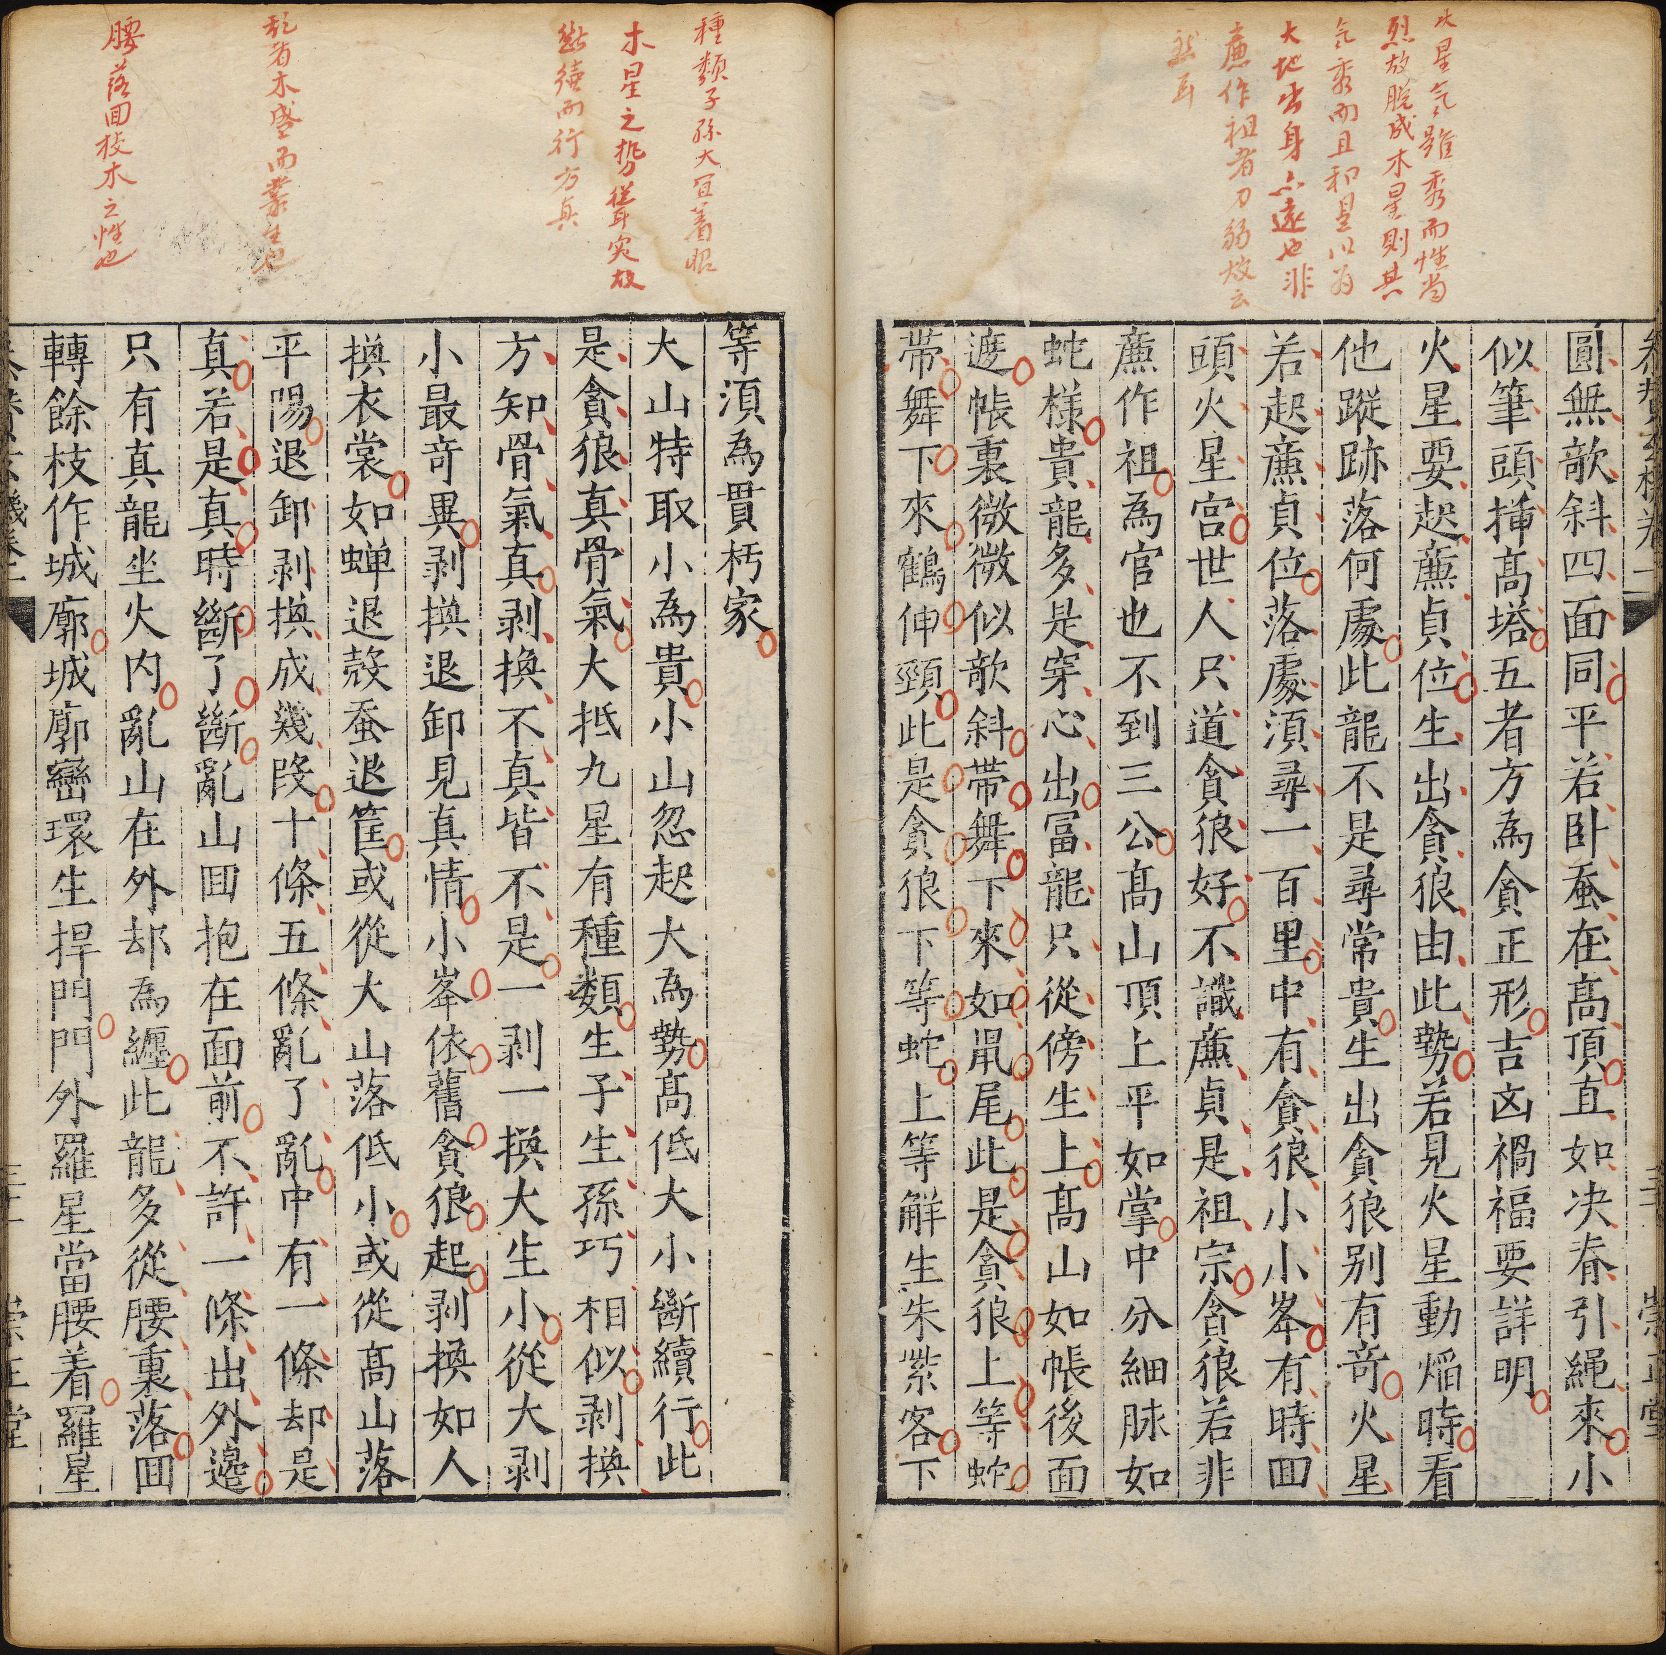 火星气雖秀而性尚
烈故脫成木星則其
气秀而且和是以為
大地出身亦遠也非
㢘作祖者力弱故云
然耳
圓無欹斜四面同平若卧蚕在髙頂直如决脊引繩來小
似筆頭揷髙塔五者方為貪正形吉凶禍福要詳明
火星要起㢘貞位生出貪狼由此勢若見火星動熖時看
他蹤跡落何處此龍不是尋常貴生出貪狼别有竒火星
若起㢘貞位落處須尋一百里中有貪狼小小峯有時囬
頭火星宮世人只道貪狼好不識㢘貞是祖宗貪狼若非
㢘作祖為官也不到三公髙山頂上平如掌中分細脉如
蛇樣貴龍多是穿心出冨龍只從傍生上髙山如帳後面
遮帳裏微微似欹斜帶舞下來如鼠尾此是貪狼上等蛇
帶舞下來鶴伸頸此是貪狼下等蛇上等觧生朱紫客下
種類子孫大宜着眼
木星之勢聳突故
斷續而行方真
亂者木盛而叢生也
腰落囬枝木之性也
等須為貫朽家
大山特取小為貴小山忽起大為勢髙低大小斷續行此
是貪狼真骨氣大抵九星有種類生子生孫巧相似剥換
方知骨氣真剥換不真皆不是一剥一換大生小從大剥
小最竒異剥換退卸見真情小峯依舊貪狼起剥換如人
換衣裳如蟬退殼蚕退筐或從大山落低小或從髙山落
平陽退卸剥換成幾叚十條五條亂了亂中有一條却是
真若是真時斷了斷亂山囬抱在面前不許一條出外邊
只有真龍坐火内亂山在外却為纒此龍多從腰裏落囬
轉餘枝作城廓城廓巒環生捍門門外羅星當腰着羅星